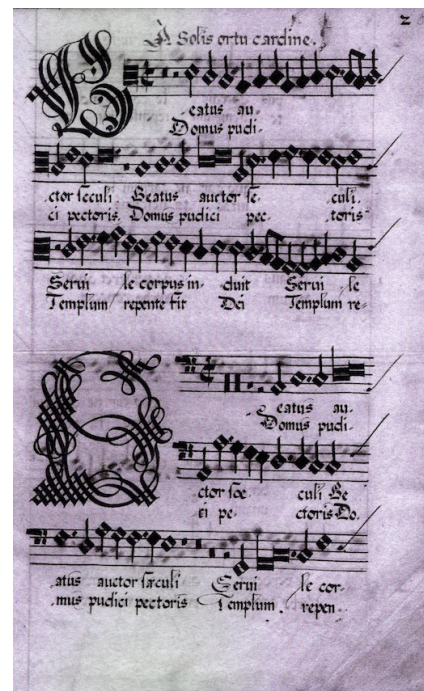 2
À Solis ortu cardine.
B
eatus au-
Domus pudi-
ctor sęculi. Beatus auctor sę- culi.
ci pectoris. Domus pudici pec- toris
Servi le corpus in- duit Servi le
Templum repente fit Dei Templum re-
B
eatus au-
Domus pudi-
ctor sæ- culi Be
ci pe- ctoris Do.
atus auctor sæculi Servi le cor-
mus pudici pectoris Templum repen-